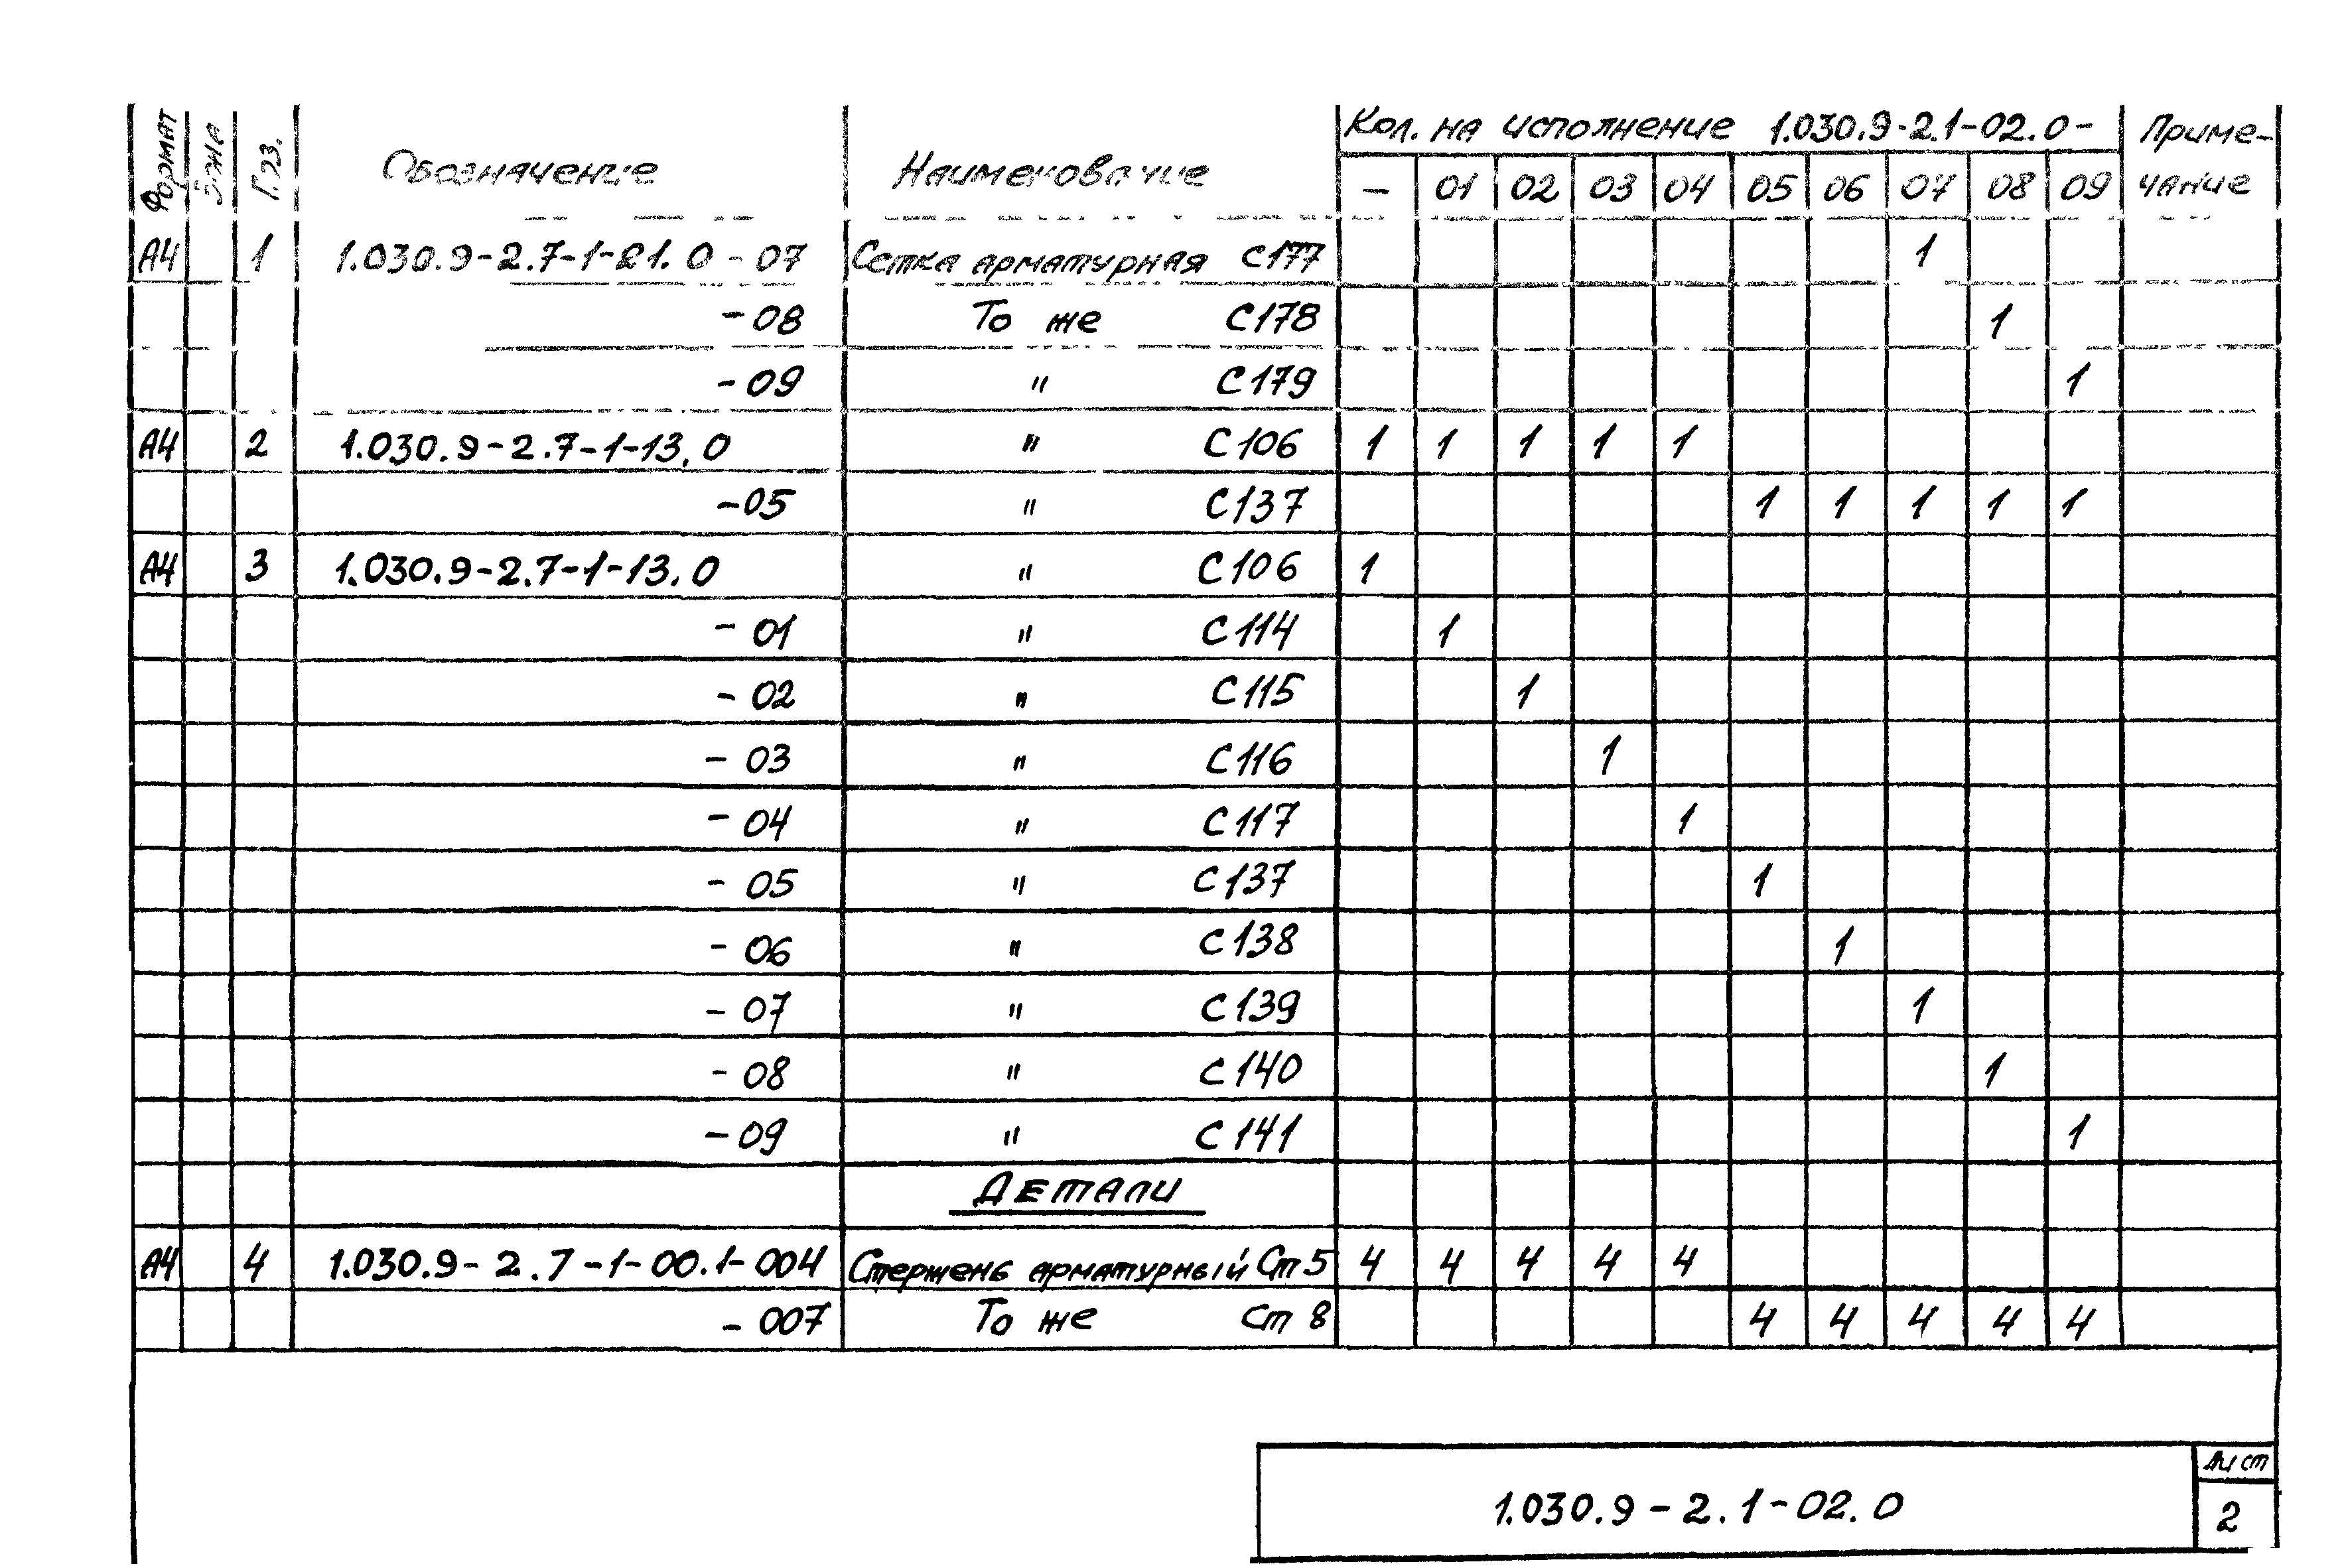 Формат Зона Поз. Обозначение Наименование Кол. на исполнение 1.030.9-2.1-02.0- Приме-
— 01 02 03 04 05 06 07 08 09 чание
А4 1 1.030.9-2.7-1-21.0 - 07 Сетка арматурная С177 1
- 08 То же С178 1
- 09 " С179 1
А4 2 1.030.9-2.7-1-13.0 " С106 1 1 1 1 1
-05 " С137 1 1 1 1 1
А4 3 1.030.9-2.7-1-13.0 " С106 1
- 01 " С114 1
- 02 " С115 1
- 03 " С116 1
- 04 " С117 1
- 05 " С137 1
- 06 " С138 1
- 07 " С139 1
- 08 " С140 1
- 09 " С141 1
Детали
А4 4 1.030.9-2.7-1-00.1-004 Стержень арматурный Ст5 4 4 4 4 4
- 007 То же Ст 8 4 4 4 4 4
Лист
1.030.9-2.1-02.0 2